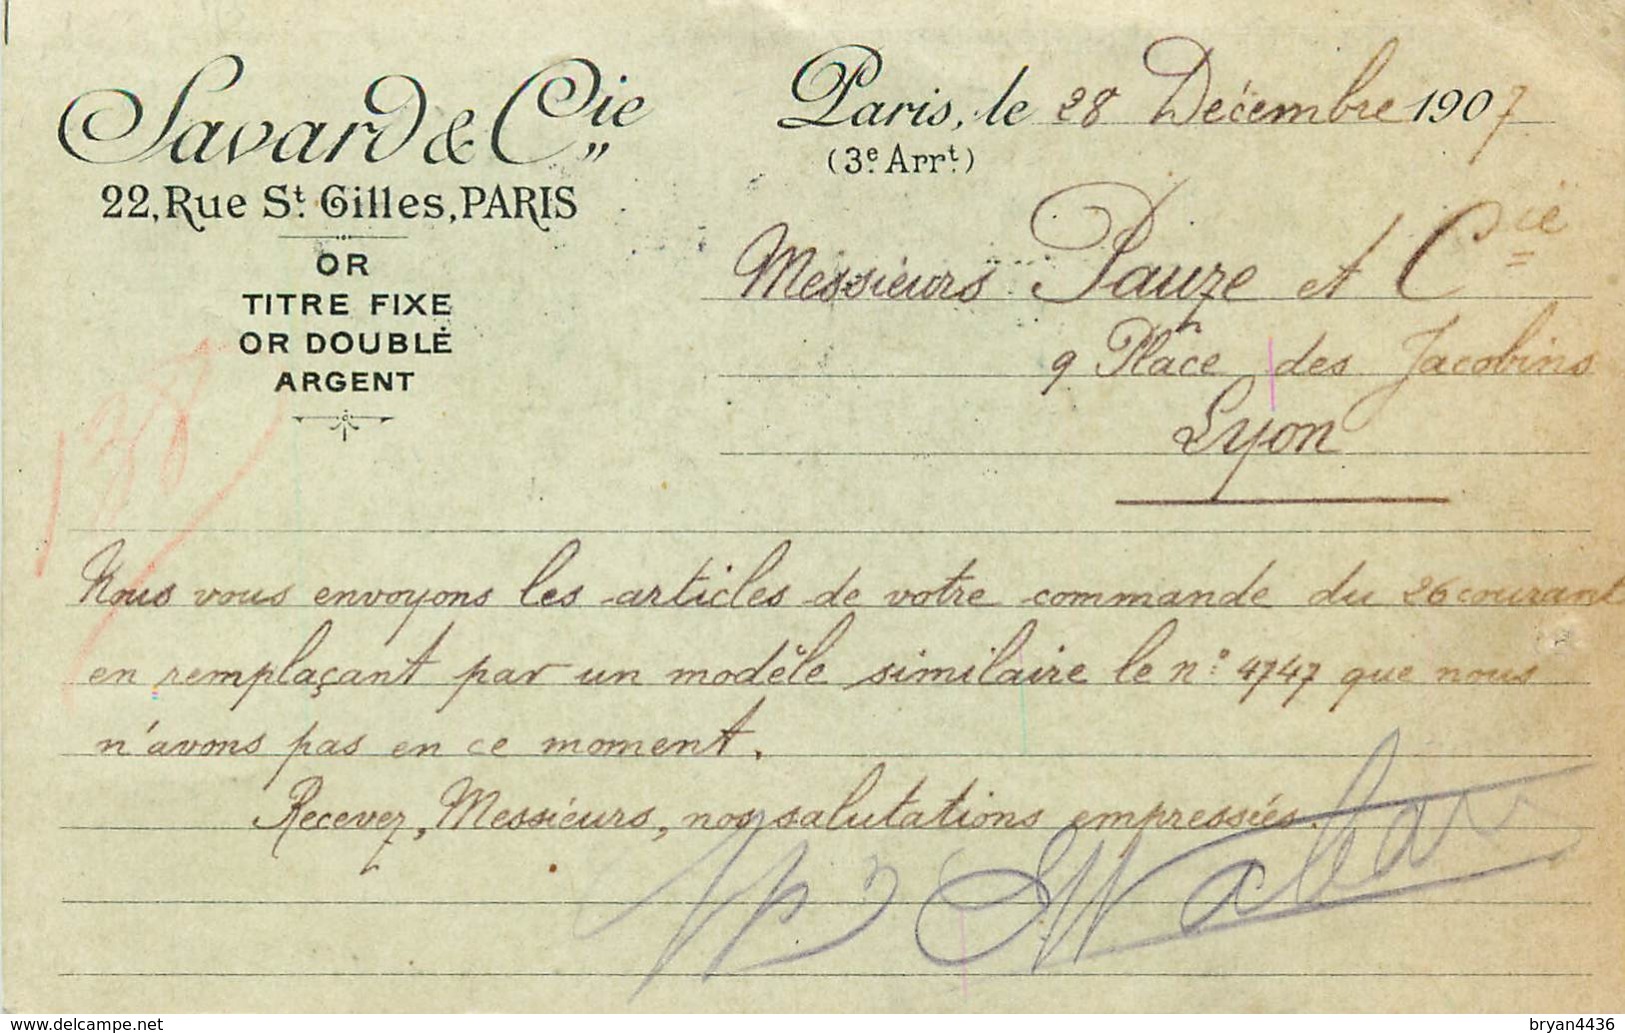 Savard & Cie
22, Rue St. Gilles, PARIS
OR
TITRE FIXE
OR DOUBLÉ
ARGENT
138
Paris, le 28 Décembre 1907
(3e. Arrt)
Messieurs Pauze et Cie
9 Place des Jacobins
Lyon
Nous vous envoyons les articles de votre commande du 26 courant
en remplaçant par un modèle similaire le n° 4747 que nous
n'avons pas en ce moment.
Recevez, Messieurs, nos salutations empressées.
delcampe.net
bryan4436